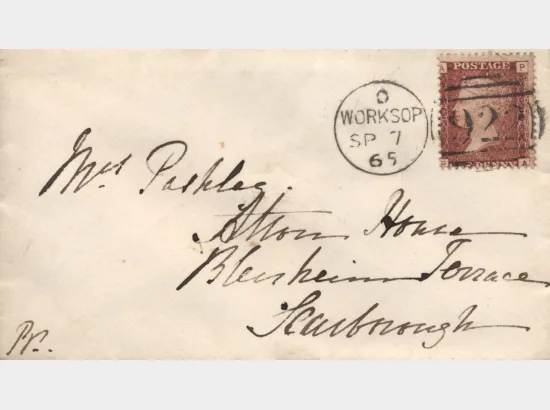 A POSTAGE P
D
WORKSOP
SP 7
65
92
P A
Mrs Pashley.
Alton House
Blenheim Terrace
Scarborough